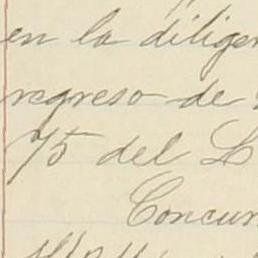 en la diliger
regreso de
75 del L
Concur